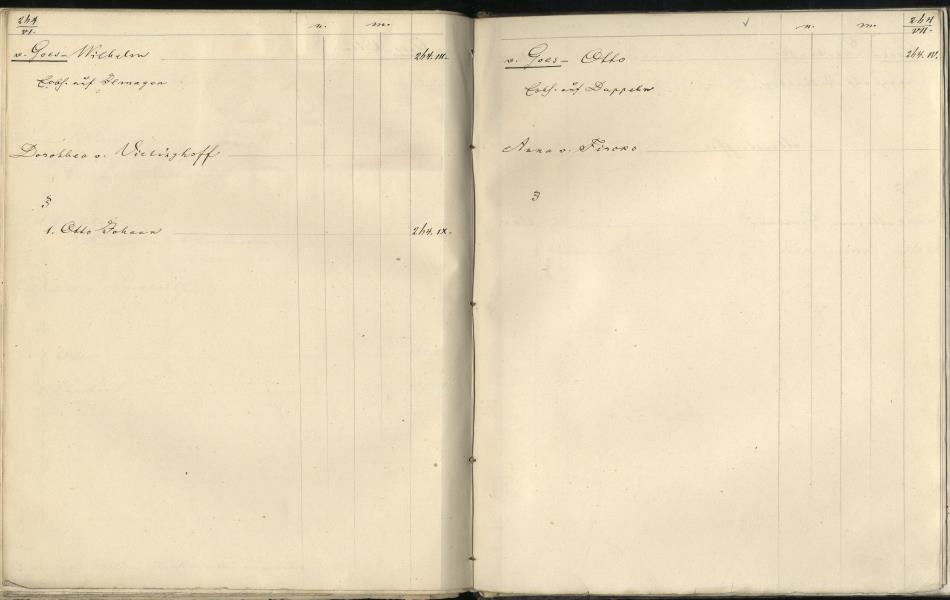 264
VI.
n. m.
v. Goes- Wilhelm 264. III.
Erbh. auf Ilmagen
Dorothea v. Vietinghoff
3
1. Otto Johann 264. IX.
n. m.
264
VII.
v. Goes- Otto 264. IV.
Erbh. auf Duppeln
Anna v. Fircks
3